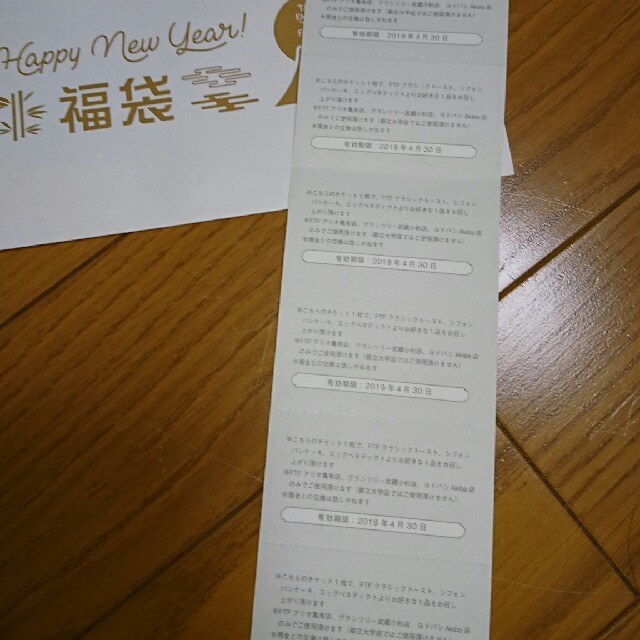 Happy New Year!
福袋
のみでご使用頂けます（都立大学店でご使用頂けません）
※現金との交換は致しかねます
有効期限：2019年4月30日
※こちらのチケット1枚で、FTF クラシックトースト、シフォン
パンケーキ、エッグベネディクトよりお好きな1品をお召し
上がり頂けます
※FTF アリオ亀有店、グランツリー武蔵小杉店、ヨドバシAkiba店
のみでご使用頂けます（都立大学店ではご使用頂けません）
※現金との交換は致しかねます
有効期限：2019年4月30日
※こちらのチケット1枚で、FTF クラシックトースト、シフォン
パンケーキ、エッグベネディクトよりお好きな1品をお召し
上がり頂けます
※FTF アリオ亀有店、グランツリー武蔵小杉店、ヨドバシAkiba店
のみでご使用頂けます（都立大学店ではご使用頂けません）
※現金との交換は致しかねます
有効期限：2019年4月30日
※こちらのチケット1枚で、FTF クラシックトースト、シフォン
パンケーキ、エッグベネディクトよりお好きな1品をお召し
上がり頂けます
※FTF アリオ亀有店、グランツリー武蔵小杉店、ヨドバシAkiba店
のみでご使用頂けます（都立大学店ではご使用頂けません）
※現金との交換は致しかねます
有効期限：2019年4月30日
※こちらのチケット1枚で、FTF クラシックトースト、シフォン
パンケーキ、エッグベネディクトよりお好きな1品をお召し
上がり頂けます
※FTF アリオ亀有店、グランツリー武蔵小杉店、ヨドバシAkiba店
のみでご使用頂けます（都立大学店ではご使用頂けません）
※現金との交換は致しかねます
有効期限：2019年4月30日
※こちらのチケット1枚で、FTF クラシックトースト、シフォン
パンケーキ、エッグベネディクトよりお好きな1品をお召し
上がり頂けます
※FTF アリオ亀有店、グランツリー武蔵小杉店、ヨドバシAkiba店
のみでご使用頂けます（都立大学店ではご使用頂けません）
※現金との交換は致しかねます